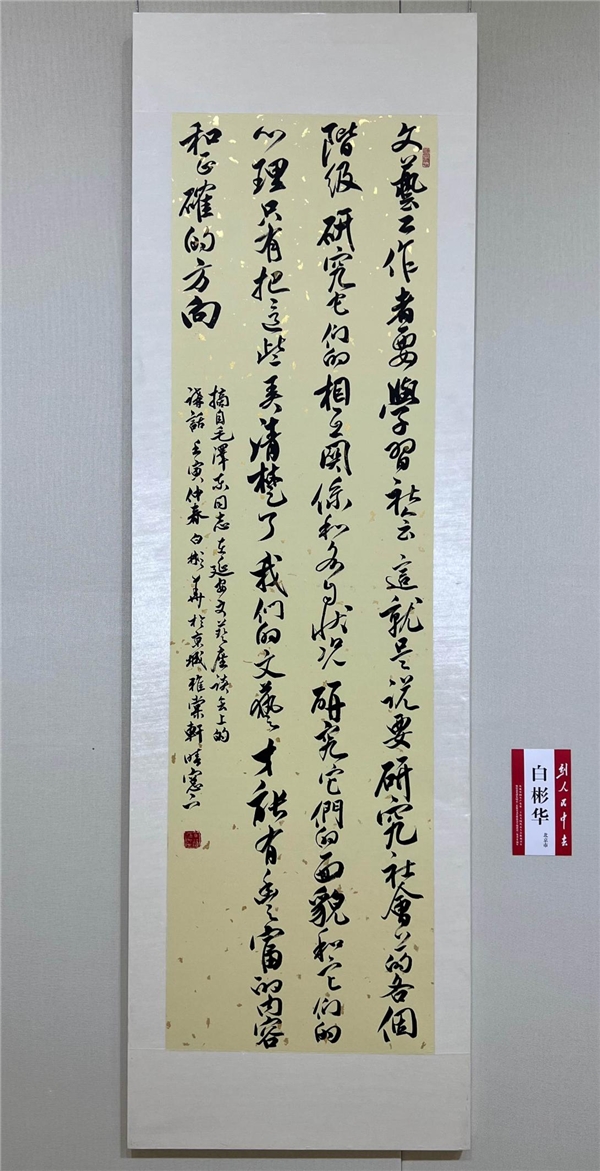 文藝工作者要學習社会這就是说要研究社會上的各個
階级研究它们的相互関係和各自状况研究它們的面貌和它们的
心理只有把這些弄清楚了我们的文藝才能有豐富的内容
和正確的方向
摘自毛澤东同志在延安文藝座谈会上的
講話壬寅仲春白彬華於京城雅棠軒晴窗下
到人民中去
白彬华
北京市